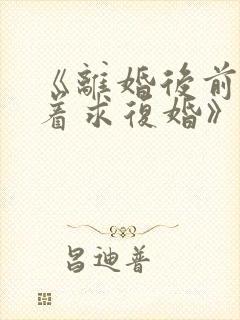 《離婚後前
着求復婚》
昌迪普